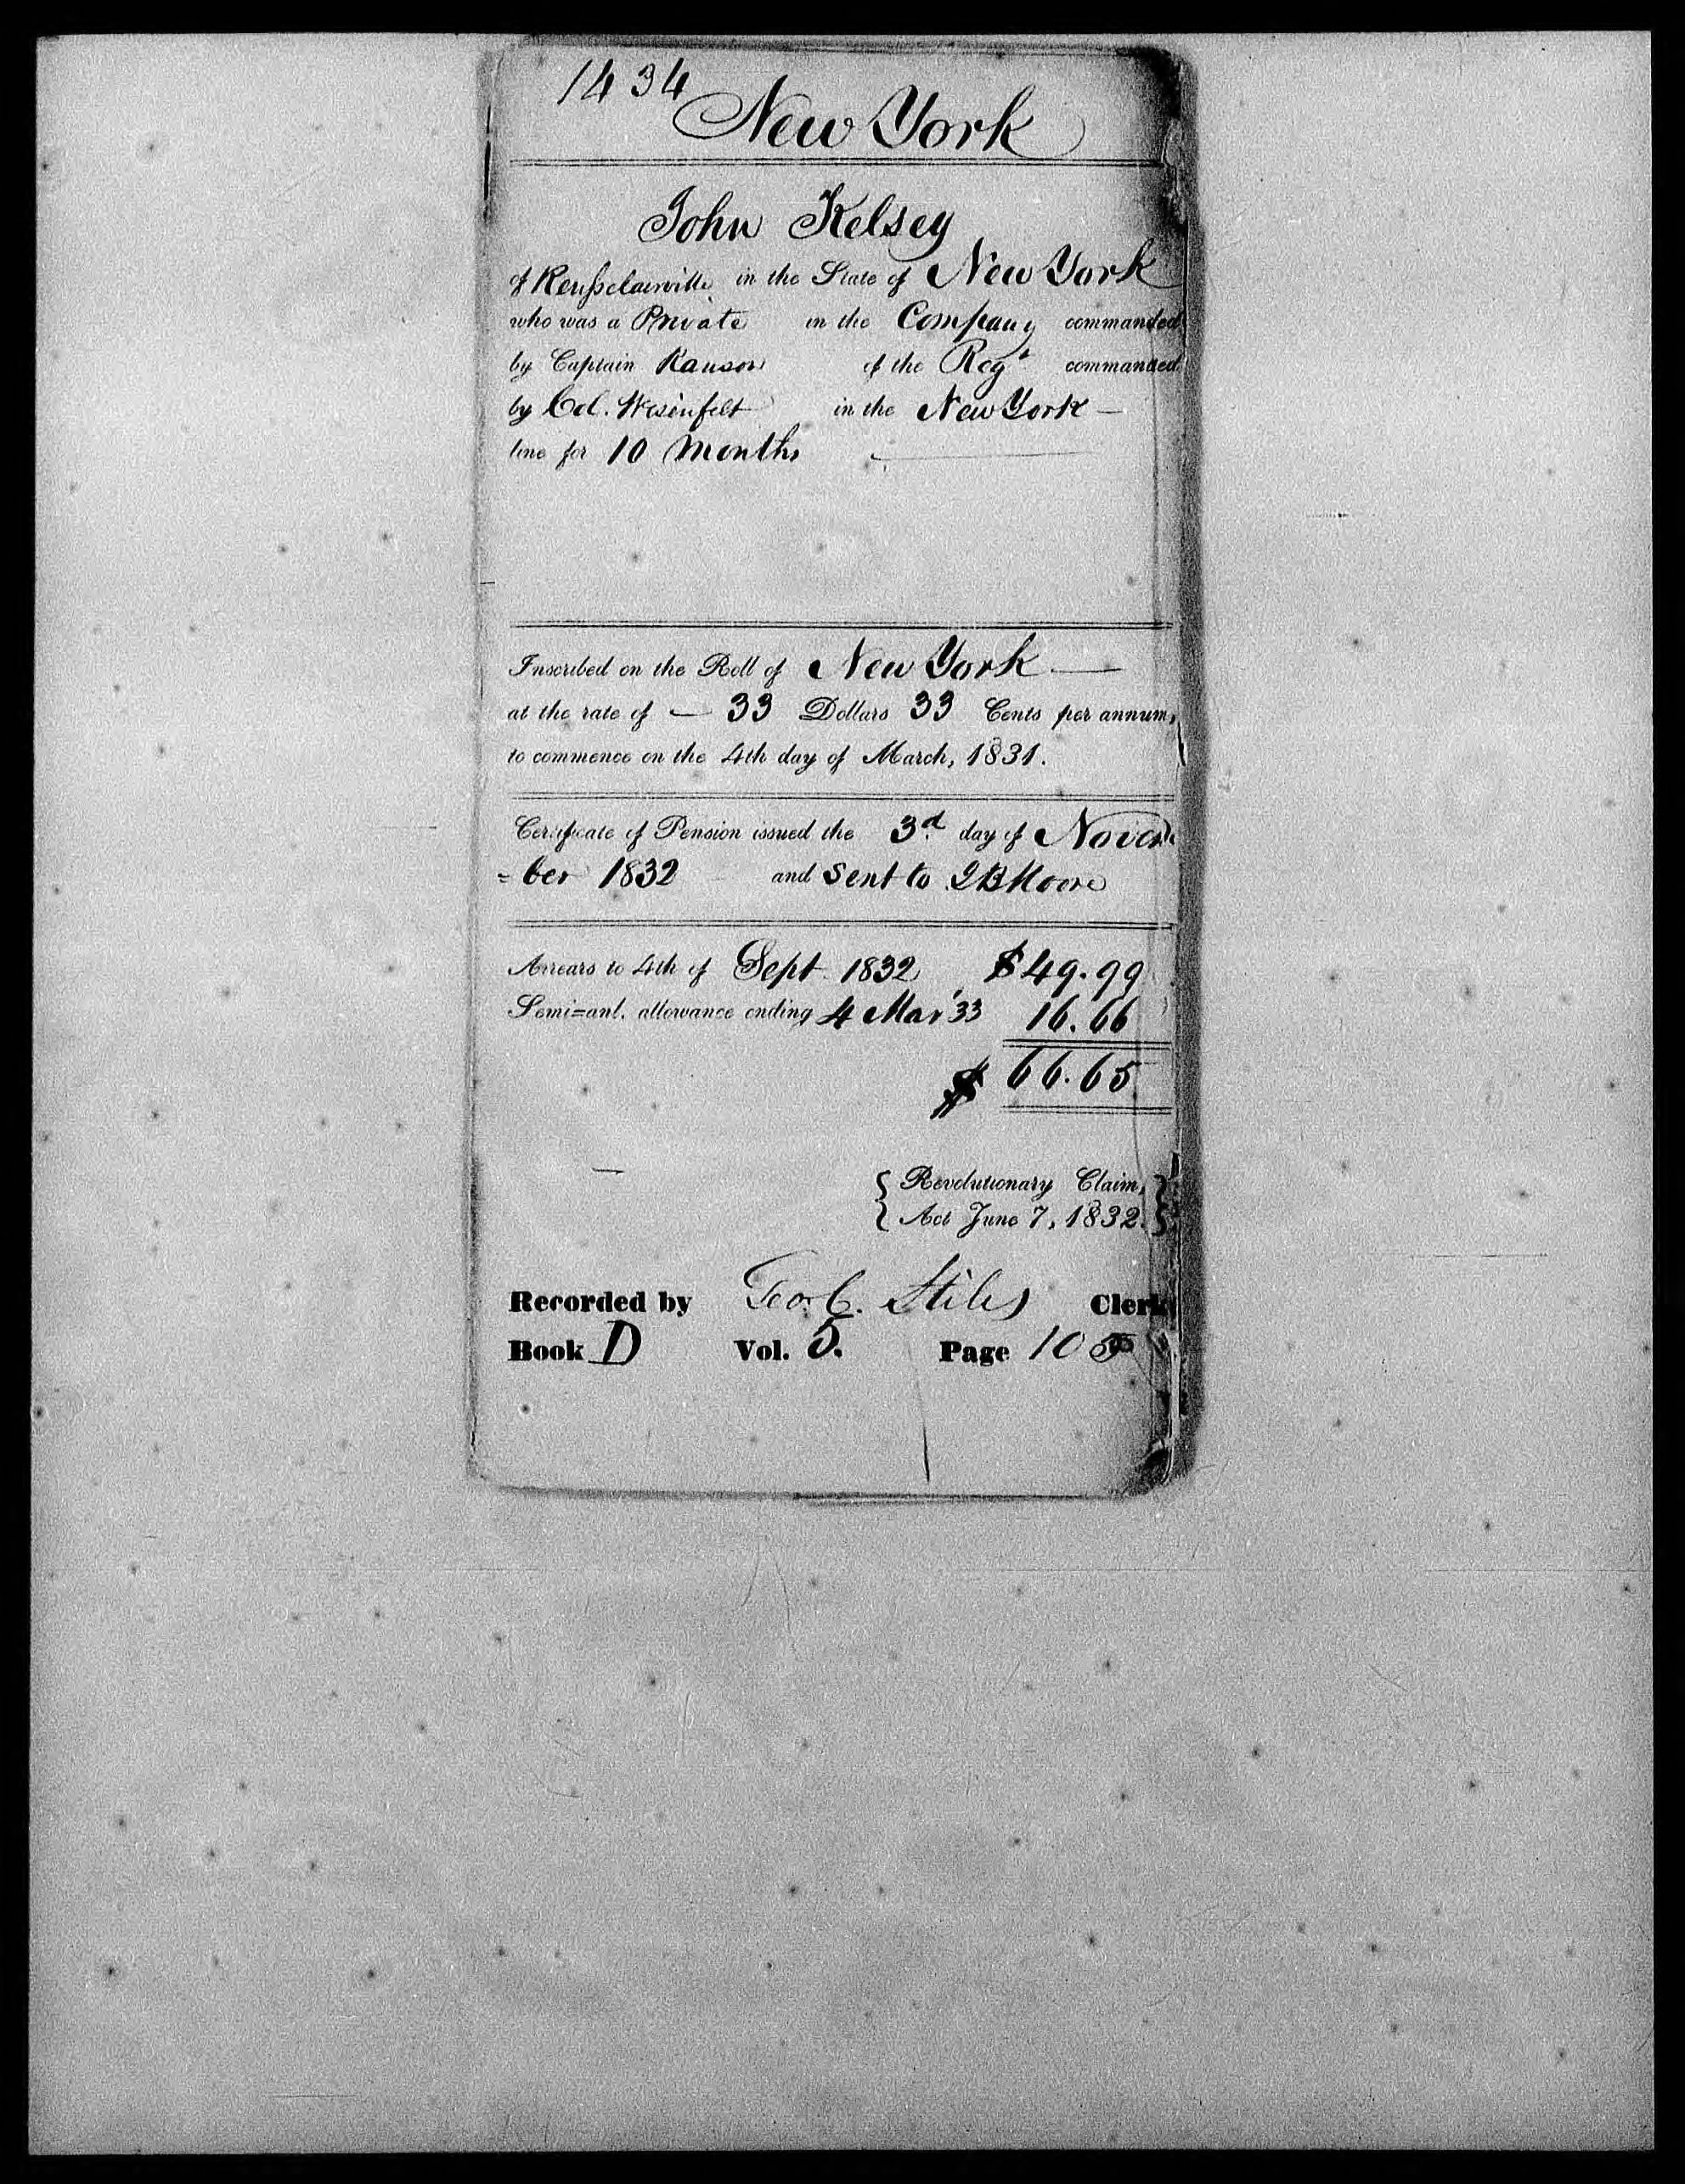 1434
New York
John Kelsey
of Rensselaerville in the State of New York
who was a Private in the Company commanded
by Captain Ranson of the Regt commanded
by Col. Wesinfelt in the New York —
line for 10 Months
Inscribed on the Roll of New York —
at the rate of — 33 Dollars 33 Cents per annum,
to commence on the 4th day of March, 1831.
Certificate of Pension issued the 3d. day of Novem
= ber 1832 and sent to Moore
Arrears to 4th of Sept. 1832 $49.99
Semi=anl. allowance ending 4 Mar '33 16.66
$ 66.65
{ Revolutionary Claim, }
{ Act June 7, 1832. }
Recorded by Geo. C. Stiles Clerk
Book D Vol. 5. Page 105